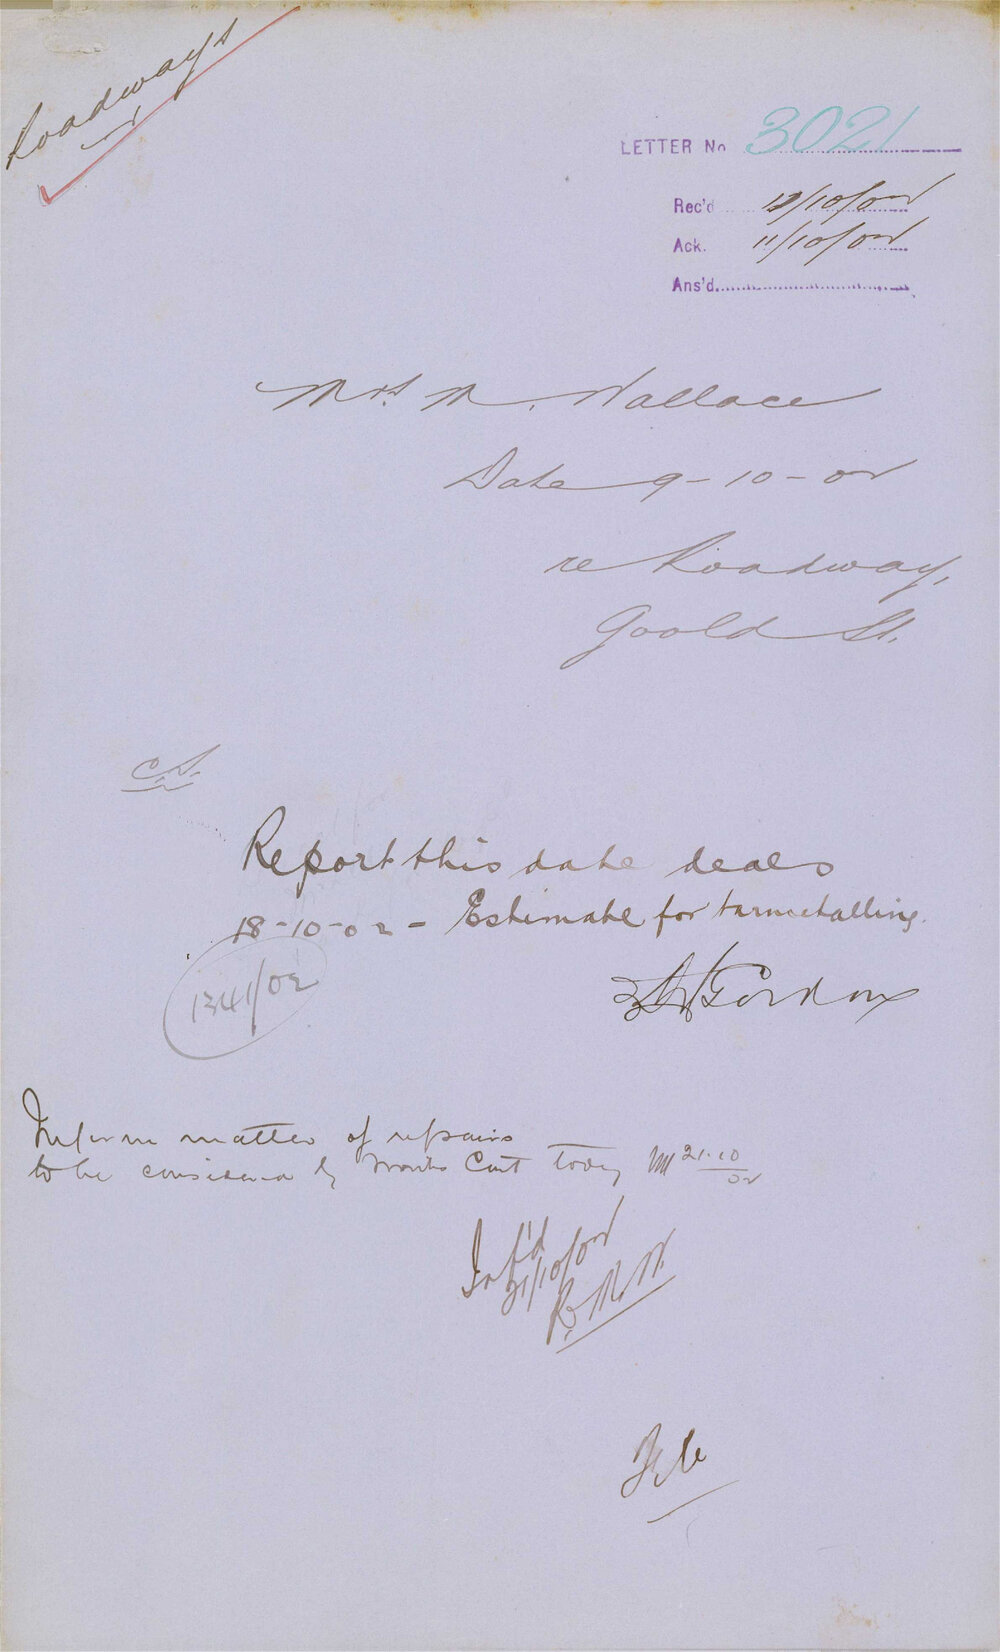 Roadways
LETTER No 3021
Rec'd 10/10/02
Ack. 11/10/02
Ans'd.
Mrs. M. Wallace
Date 9-10-02
re Roadway,
Goold St.
C.S.
Report this date deals
18-10-02 - Estimate for tarmetalling.
Gordon
1341/02
Inform matter of repairs
to be considered by Works Com't today 21.10
02
Inf'd
21/10/02
R.M.W.
File